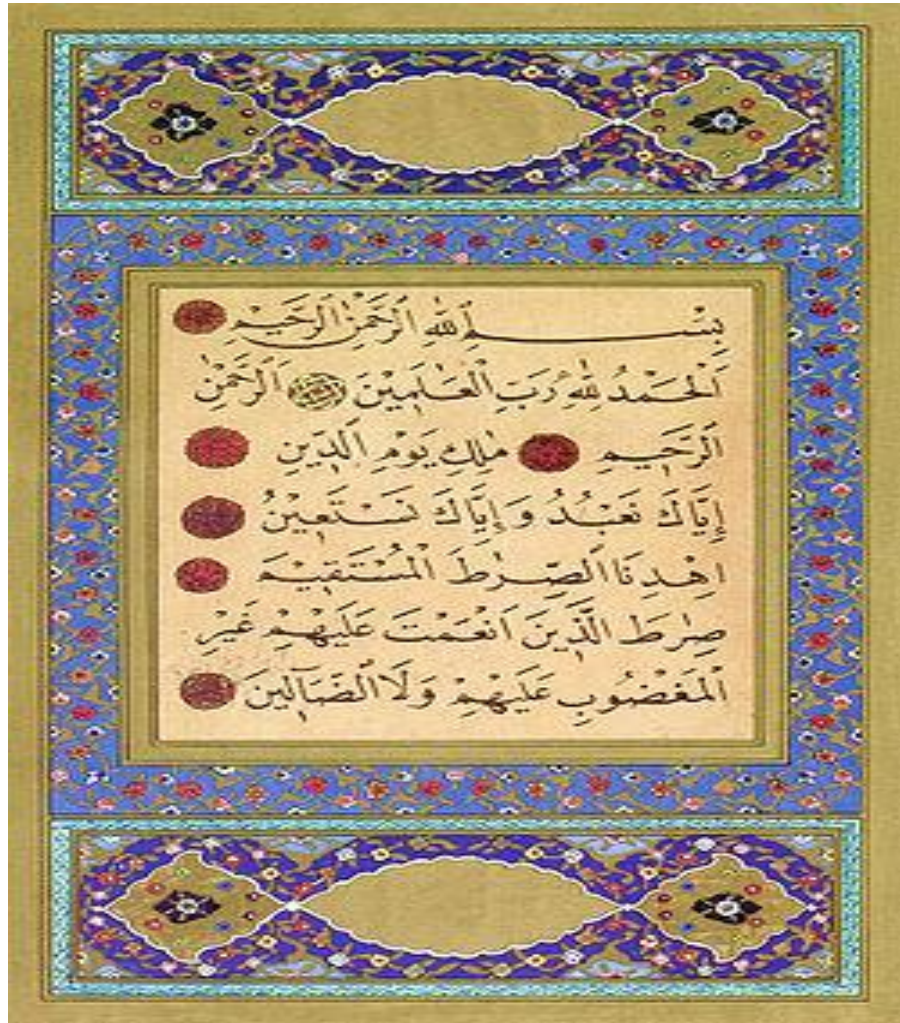 بِسْمِ ٱللَّهِ ٱلرَّحْمٰنِ ٱلرَّحِيمِ
اَلْحَمْدُ لِلّٰهِ رَبِّ الْعَالَمِينَ اَلرَّحْمٰنِ
الرَّحِيمِ مٰلِكِ يَوْمِ الدِّينِ
إِيَّاكَ نَعْبُدُ وَإِيَّاكَ نَسْتَعِينُ
اِهْدِنَا الصِّرٰطَ الْمُسْتَقِيمَ
صِرٰطَ الَّذِينَ اَنْعَمْتَ عَلَيْهِمْ غَيْرِ
الْمَغْضُوبِ عَلَيْهِمْ وَلَا الضَّآلِّينَ